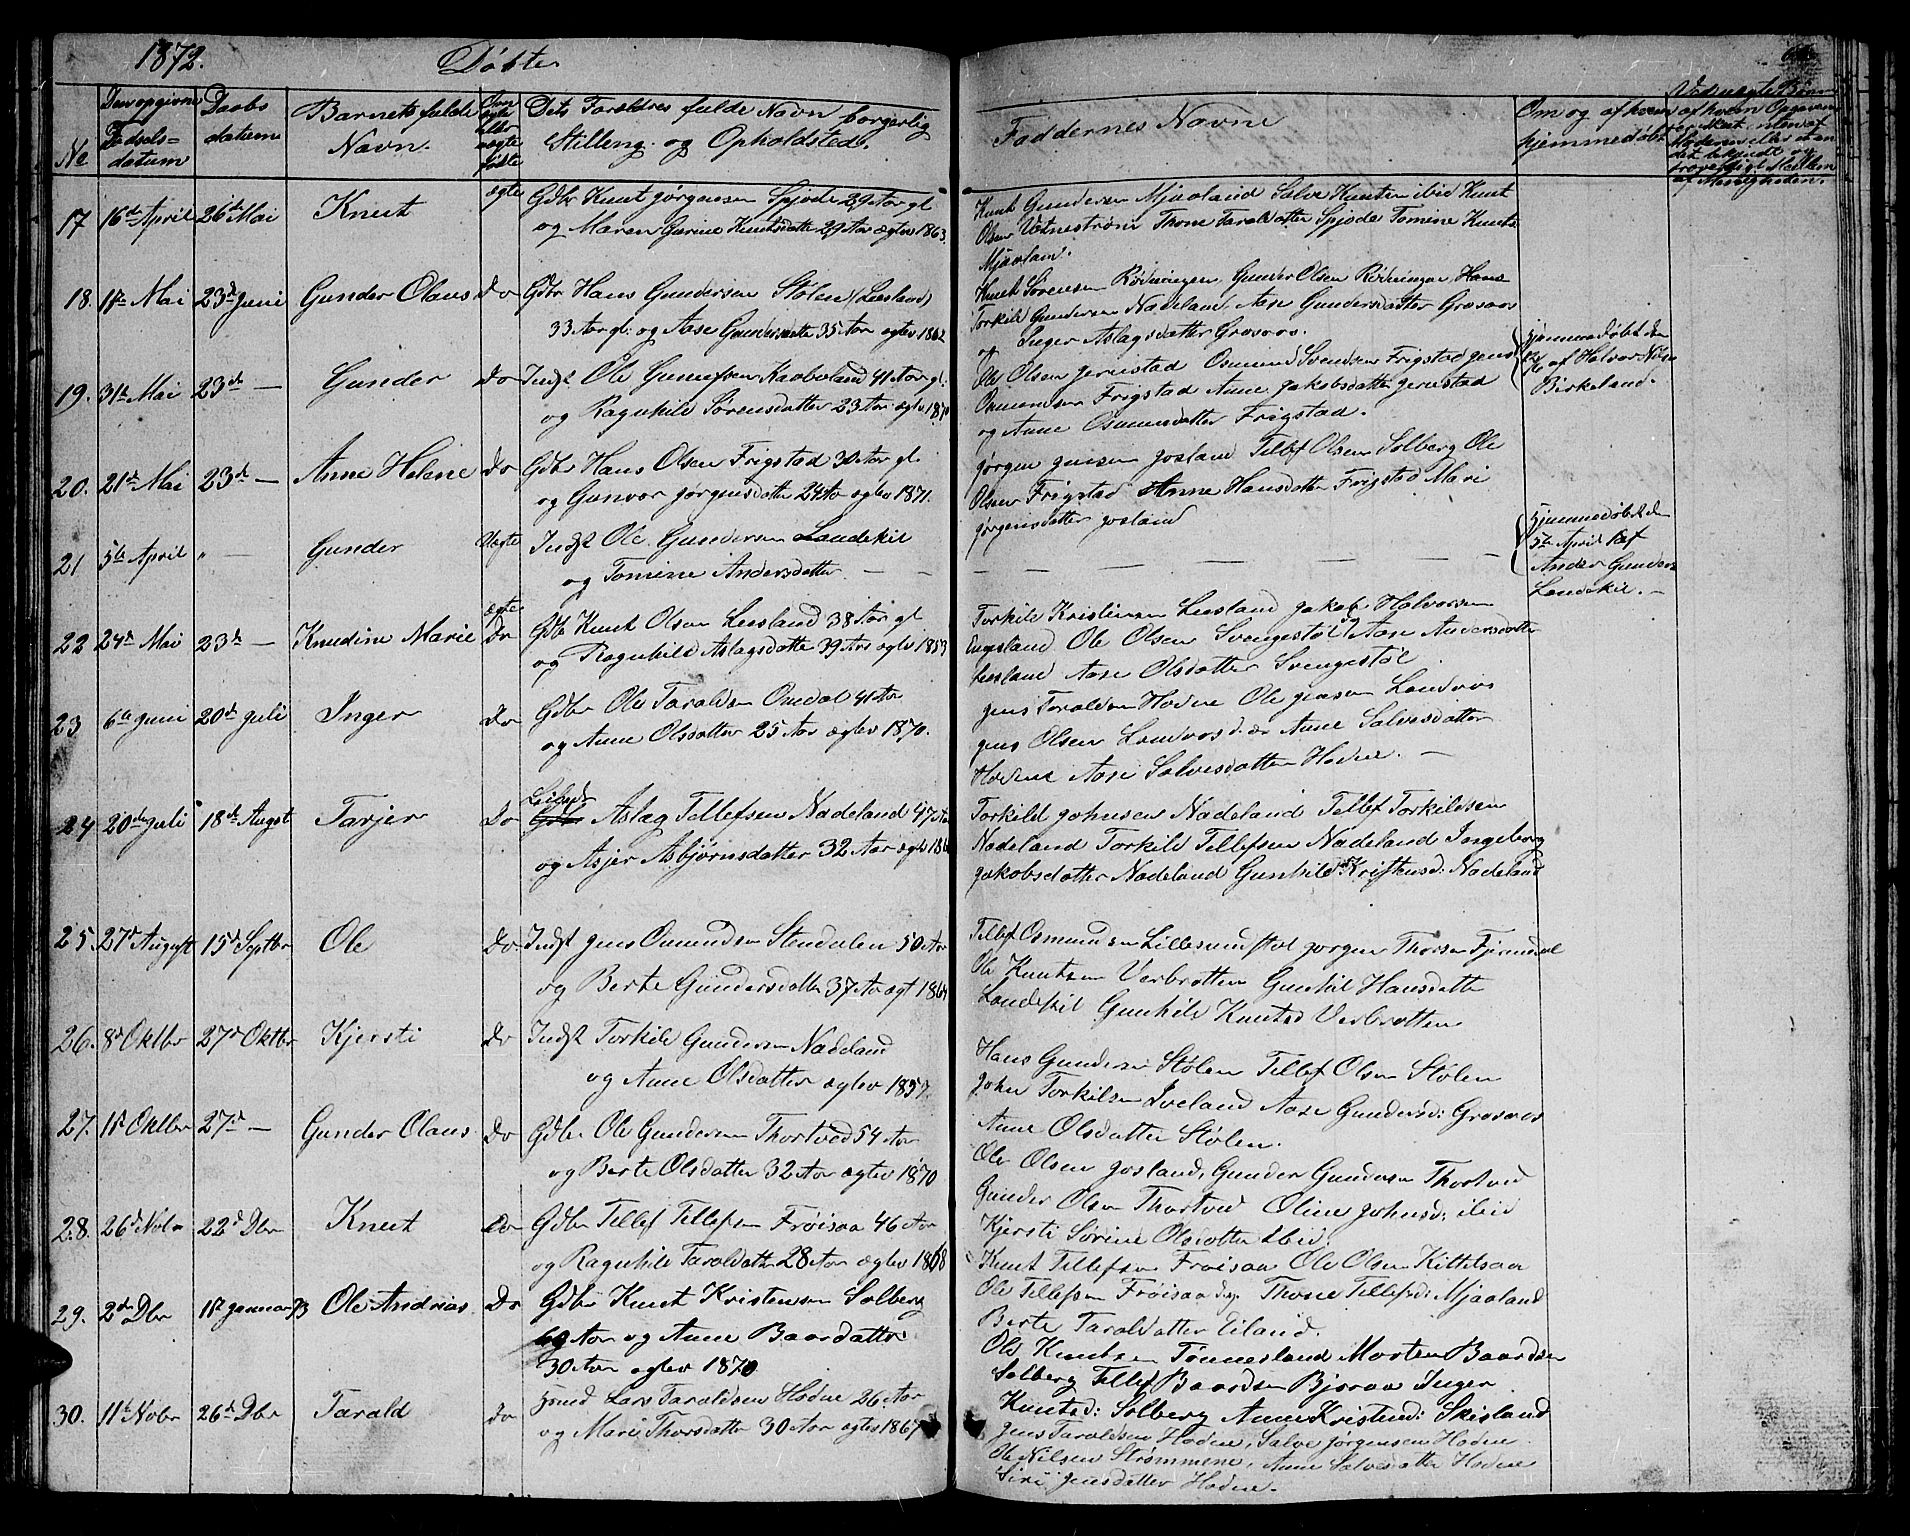 1872. Døbte
No
Den opgivne Fødsels-datum
Daabs datum
Barnets fulde Navn.
Om ægte eller uægte fødte
Dets Forældres fulde Navn borgerlig Stilling og Opholdsted.
Faddernes Navne
Om og af hvem hjemmedøbt
17 16de April 26de Mai Knut ægte Gbr Knut Jørgensen Spjode 29 Aar gl
og Maren Gurine Knutsdatter 29 Aar ægtev 1863.
Knut Gundersen Mjaaland Salve Knutsen ibid Knut
Olsen Vetnestrøm Thone Taraldsdatter Spjode Tomine Knuts
Mjaaland.
18. 1te Mai 23de Juni Gunder Olaus Do Gbr Hans Gundersen Stølen (Leesland)
33 Aar gl. og Aase Gundersdatte 35 Aar ægtev 1862
Knut Sørensen Rødningen, Gunder Olsen Rødningen Hans
Torkild Gundersen Nadeland, Aase Gundersdatter Grosaas
og Inger Aslagsdatter Grosaas.
19. 31te Mai 23de — Gunder Do Indst Ole Gunufsen Kaabuland 41 Aar gl.
og Ragnhild Sørensdatter 23 Aar ægtev 1870
Ole Olsen Jerustad Osmund Svendsen Frigstad Jens
Osmundsen Frigstad Anne Jakobsdatter Jerustad
og Anne Osmundsdatter Frigstad.
Hjemmedøbt den
af Halvor Nilsen
Birkeland.
20. 21de Mai 23de — Anne Helene Do Gbr Hans Olsen Frigstad 30 Aar gl.
og Gunvor Jørgensdatter 24 Ar ægtev 1871.
Jørgen Jensen Josland Tellef Olsen Solberg Ole
Olsen Frigstad Anne Hansdatter Frigstad Mari
Jørgensdatter Josland
21 5te April " — Gunder Uægte Indst Ole Gundersen Landskil
og Tomine Andersdatter — —
— — — — — —
Hjemmedøbt den
5te April af
Ander Gunders
Landskil. —
22 24de Mai 23de — Knudine Marie ægte Do Gbr Knut Olsen Leesland 38 Aar gl
og Ragnhild Aslagsdatte 39 Aar ægtev 1853
Torkild Kristensen Leesland Jakob Halvorsen
Engesland Ole Olsen Svengestøl Aase Andersdatter
Leesland Aase Olsdatter Svengestøl
23 6te Juni 20de Juli Inger Do Gdbr Ole Taraldsen Omdal 41 Aar
og Anne Olsdatter 25 Aar ægtev 1870.
Jens Taraldsen Hodne Ole Jensen Landaas
Jens Olsen Landaas Anne Salvesdatter
Hodne Aase Salvesdatter Hodne. —
24 20de Juli 18de August Tarjer Do Aslag Tellefsen Nadeland 47 Aar
og Asjer Asbjørnsdatter 32 Aar ægtev
Torkild Johnsen Nadeland Tellef Torkildsen
Nadeland Torkild Tellefsen Nadeland Ingeborg
Jakobsdatter Nadeland Gunhild Kristensd: Nadeland
25. 27de August 15de Septbr Ole Do Indst Jens Omundsen Stendalen 50 Aar
og Berte Gundersdatter 37 Aar ægt 1864
Tellef Osmundsen Lillesundstøl Jørgen Thorsen Fjermedal
Ole Knutsen Verbrotten Gunhil Hansdatte
Landskil Gunhild Knutsd Verbrotten
26. 8de Oktbr 27de Oktbr Kjersti Do Indst Torkild Gundersen Nadeland
og Anne Olsdatter ægtev 1857
Hans Gundersen Stølen Tellef Olsen Stølen
John Torkilsen Iveland Aase Gundersd: Grosaas
Anne Olsdatter Stølen.
27. 1st Oktbr 27de — Gunder Olaus Do Gdbr Ole Gundersen Thortved 54 Aar
og Berte Olsdatter 32 Aar ægtev 1870
Ole Olsen Josland, Gunder Gundersen Thortved
Gunder Olsen Thortved Oline Johnsd: ibid
Kjersti Sørine Olsdatter ibid.
28. 26de Novbr 22de Dbr Knut Do Gdbr Tellef Tellefsen Frøisaa 46 Aar
og Ragnhild Taraldsdatter 28 Aar ægtev 1868
Knut Tellefsen Frøisaa Ole Olsen Kittelsaa
Ole Tellefsen Frøisaa Thone Tellefsd: Mjaaland
Berte Taraldsdatter Eiland.
29. 2de Dbr 1st Januar 73 Ole Andreas. Do Gdbr Knut Kristensen Solberg
69 Aar og Anne Baardsdatter
30 Aar ægtev 1870
Ole Knutsen Tønnesland Morten Baardsen
Solberg Tellef Baardsen Bjoraa Inger
Knutsd: Solberg Anne Kristensd: Skisland
30. 11te Nobr 26de Dbr Tarald Do Huusmd Lars Taraldsen Hodne 26 Aar
og Mari Thorsdatter 30 Aar ægtev 1867
Jens Taraldsen Hodne, Salve Jørgensen Hodne
Ole Nilsen Strømmene, Anne Salvesdatter Hodne
Siri Jensdatter Hodne.